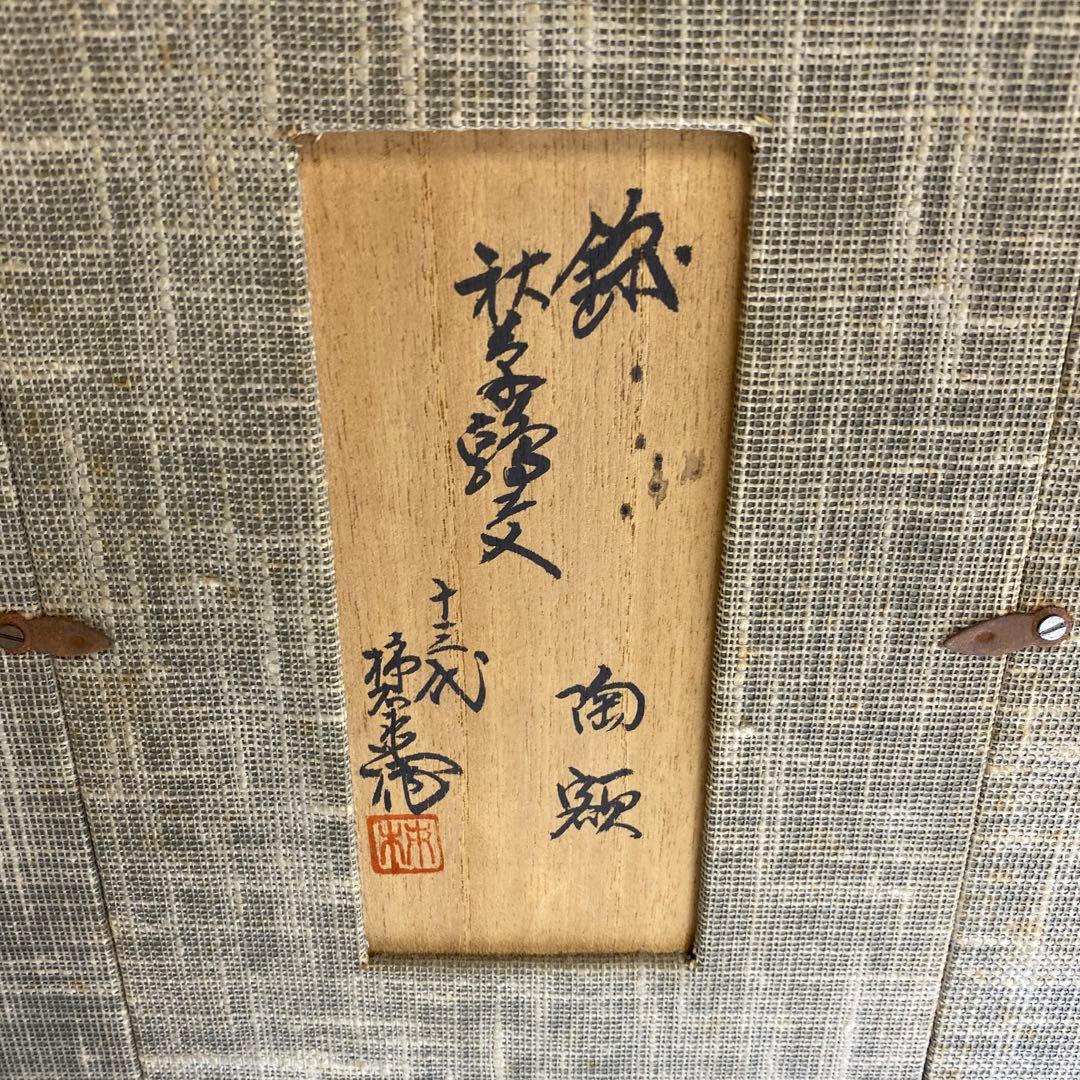 錦 陶額
秋草鶉文
十三代
柿右衛門
柿